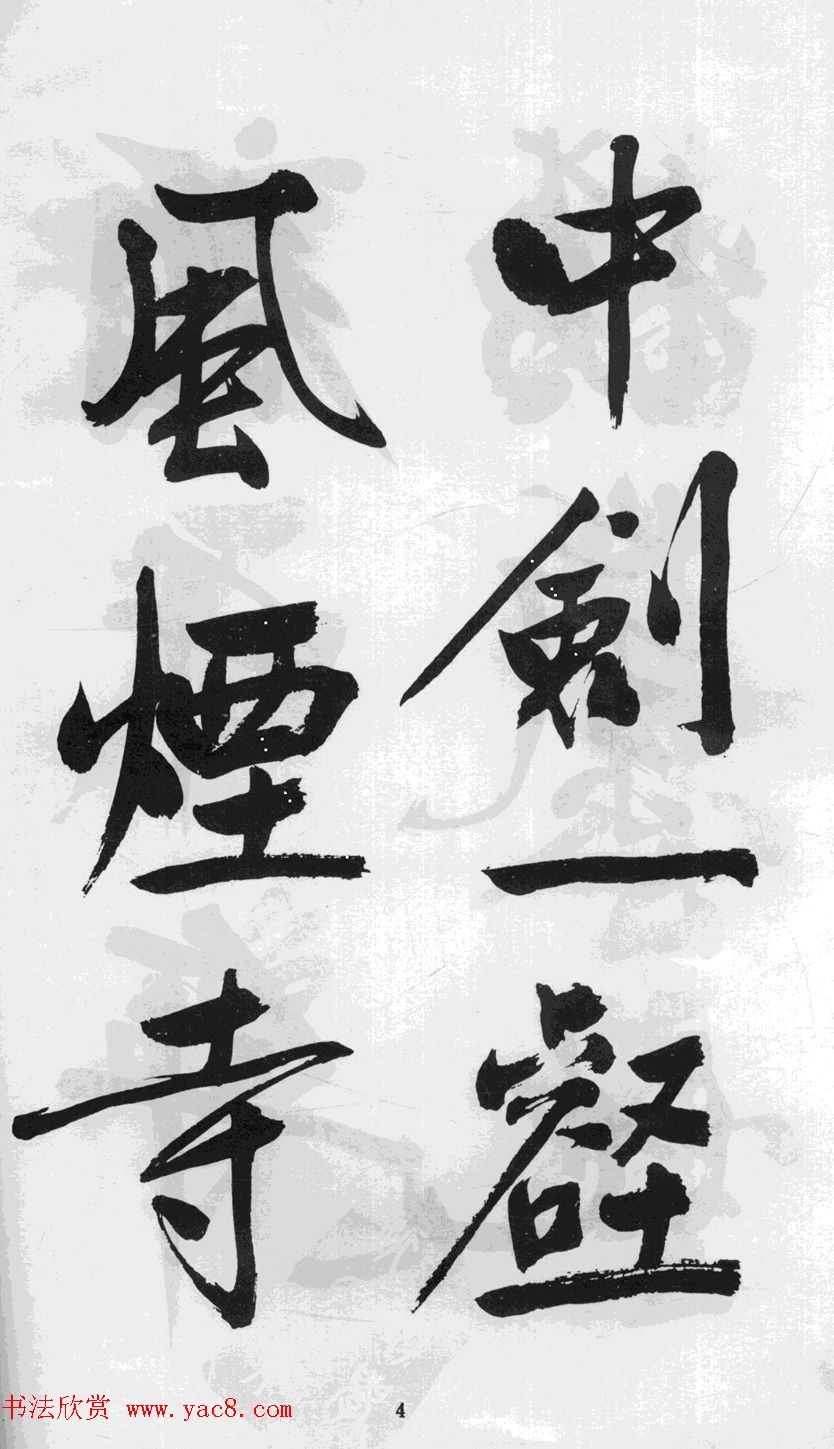 中劍一壑
風煙寺
4
书法欣赏 www.yac8.com